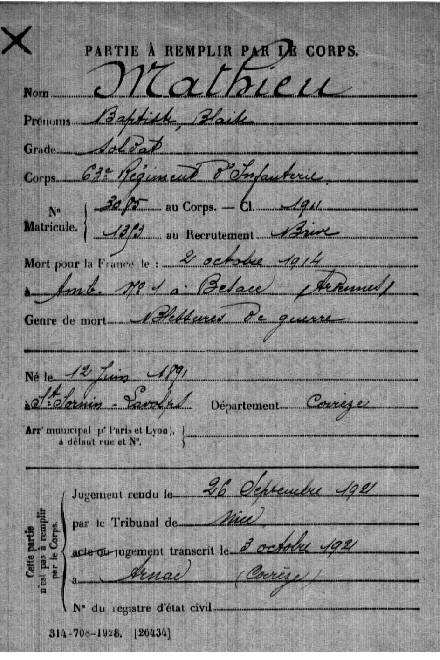 PARTIE À REMPLIR PAR LE CORPS.
Nom Mathieu
Prénoms Baptiste, Blaise
Grade Soldat
Corps 63e Régiment d'Infanterie.
N° Matricule. 3085 au Corps. — Cl. 1911
1393 au Recrutement Brive
Mort pour la France le : 2 octobre 1914
à Amb. N° 1 à (Ardennes)
Genre de mort Blessures de guerre
Né le 12 Juin 1891
à St Sornin-Lavolps Département Corrèze
Arr' municipal p' Paris et Lyon),
à défaut rue et N°.
Cette partie
n'est pas à remplir
par le Corps.
Jugement rendu le 26 Septembre 1921
par le Tribunal de
acte ou jugement transcrit le 3 octobre 1921
à Arnac (Corrèze)
N° du registre d'état civil
314-708-1928. [26434]